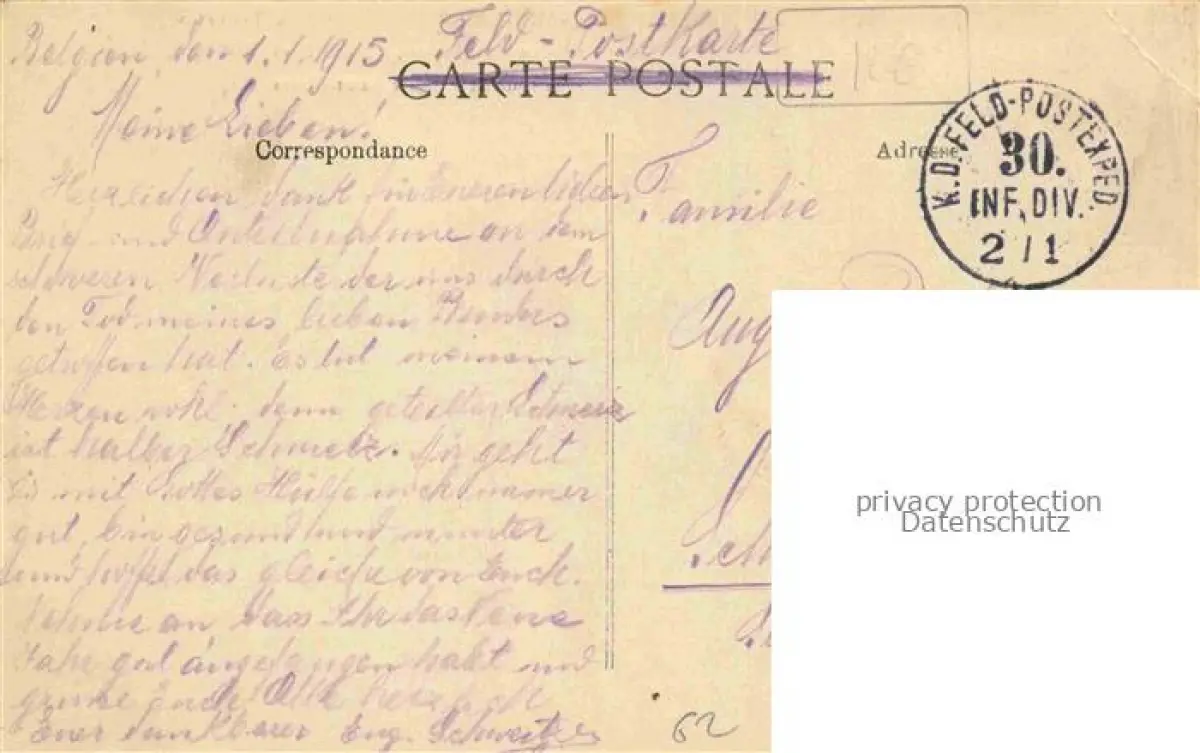 Belgien, den 1.1.1915 Feld-Postkarte
CARTE POSTALE
Meine Lieben!
Correspondance
Adresse
K.D. FELD-POSTEXPED.
30.
INF. DIV.
2/1
Herzlichen Dank für Eueren lieben
Brief und Anteilnahme an dem
schweren Verluste der uns durch
den Tod meines lieben Bruders
getroffen hat. Es tut meinem
Herzen wohl, denn geteilter Schmerz
ist halber Schmerz. Mir geht
es mit Gottes Hülfe noch immer
gut, bin gesund und munter
und hoffe das gleiche von Euch.
Nehme an, dass Ihr das Neue
Jahr gut angefangen habt und
grüsse Euch Alle herzlich
Euer dankbarer Eug. Schweitzer
Familie
Aug
62
privacy protection
Datenschutz